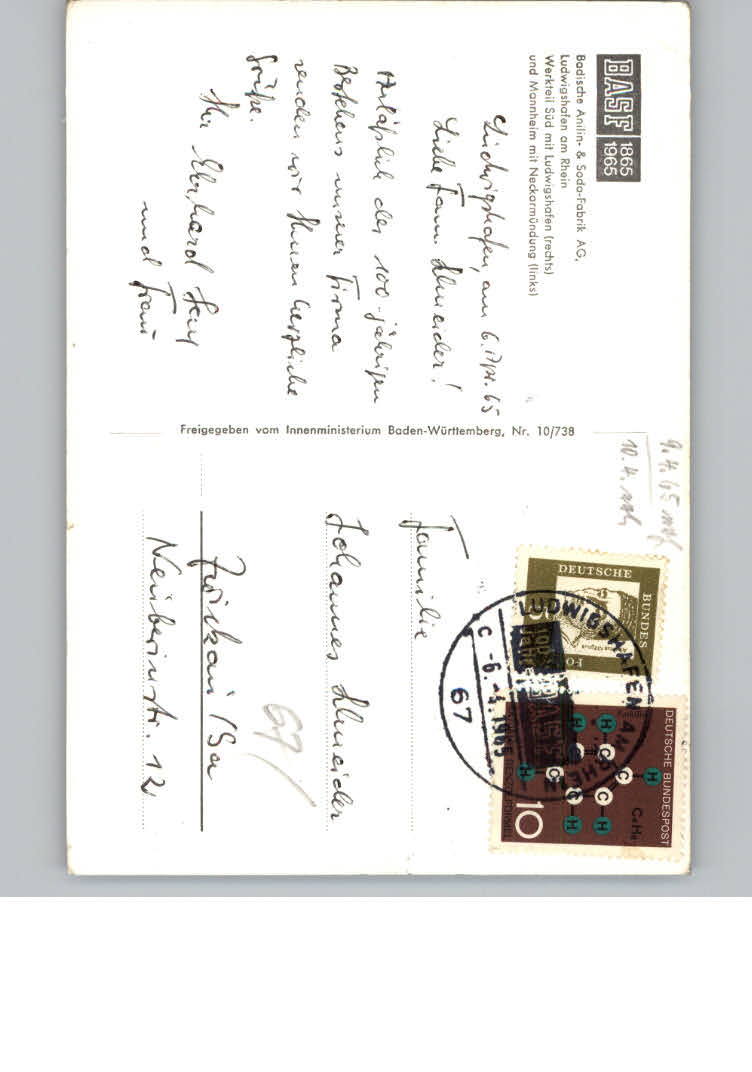 BASF 1865
1965
Badische Anilin- & Soda-Fabrik AG.
Ludwigshafen am Rhein
Werkteil Süd mit Ludwigshafen (rechts)
und Mannheim mit Neckarmündung (links)
Ludwigshafen, am 6. Apr. 65
Liebe Fam. Schneider!
Anläßlich des 100-jährigen
Bestehens unserer Firma
senden wir Ihnen herzliche
Grüße.
Ihr Eberhard
und Frau
Freigegeben vom Innenministerium Baden-Württemberg, Nr. 10/738
9.4.65
10.4.
DEUTSCHE BUNDESPOST
5
DEUTSCHE BUNDESPOST
C₆H₆
BENZOLFORMEL
10
LUDWIGSHAFEN AM RHEIN
C -6.-4.1965
67
100 Jahre BASF
Familie
Johannes Schneider
67/
Zwickau/Sa
Neuberinstr. 12